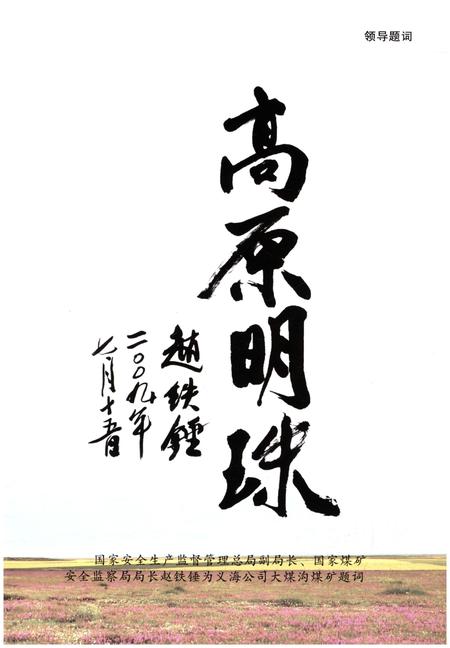 领导题词
高原明珠
趙铁锤
二〇〇九年
七月十五日
国家安全生产监督管理总局副局长、国家煤矿
安全监察局局长赵铁锤为义海公司大煤沟煤矿题词